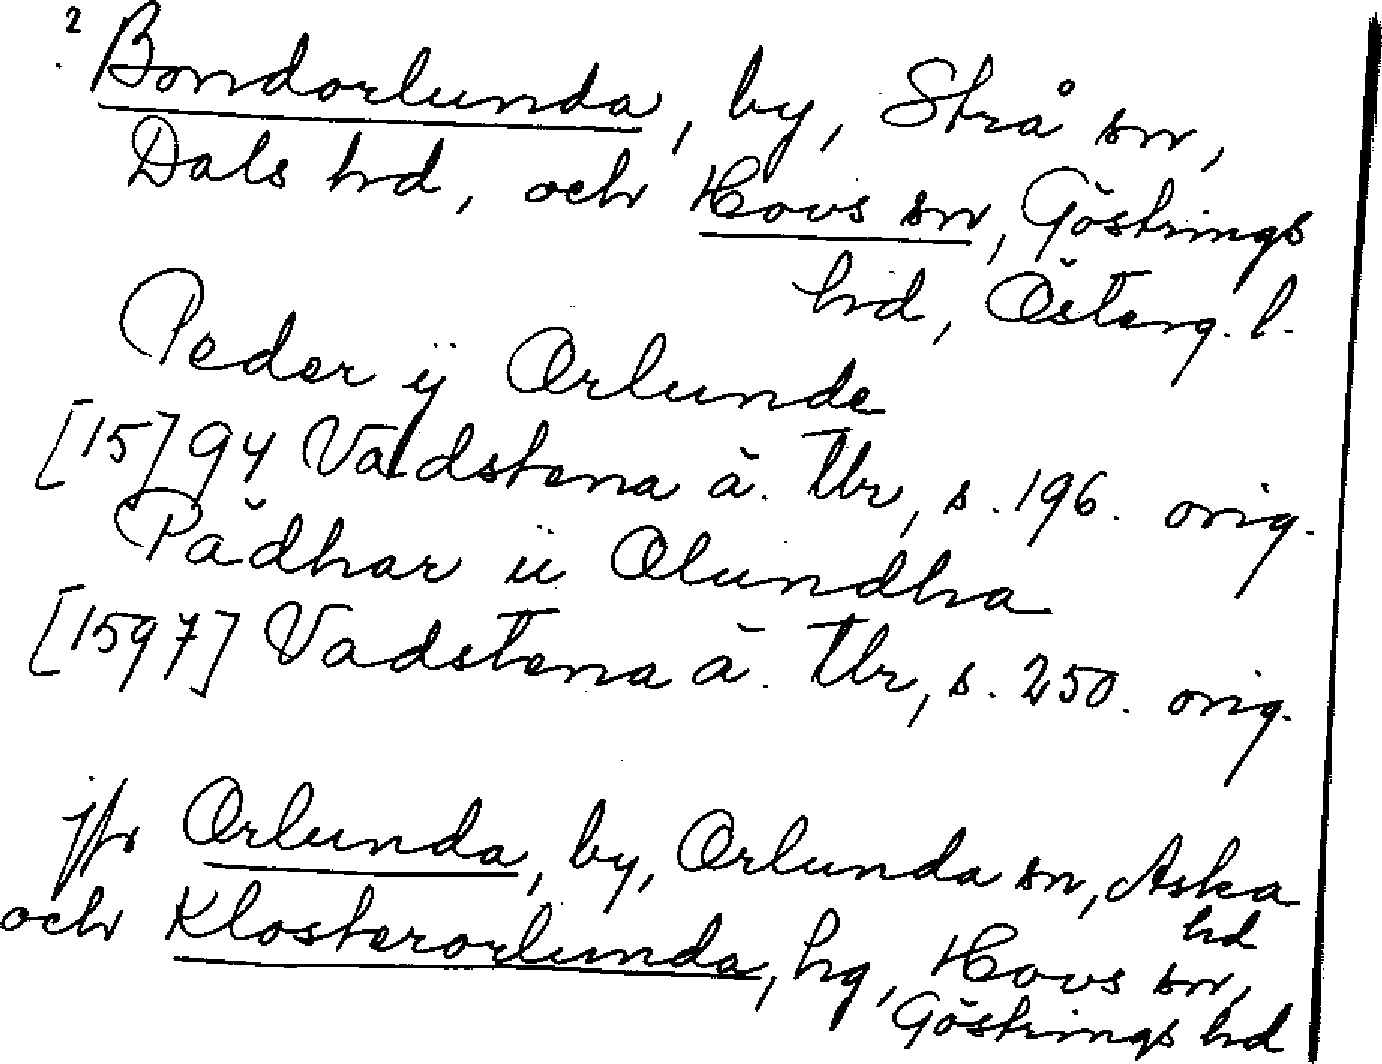 2
Bondorlunda, by, Strå sn,
Dals hd, och Hovs sn, Göstrings
hd, Österg. l.
Peder ÿ Orlunde
[15]94 Vadstena ä. tbr, s. 196. orig.
Pädhar ii Olundha
[1597] Vadstena ä. tbr, s. 250. orig.
jfr Orlunda, by, Orlunda sn, Aska
hd
och Klosterorlunda, hg, Hovs sn,
Göstrings hd